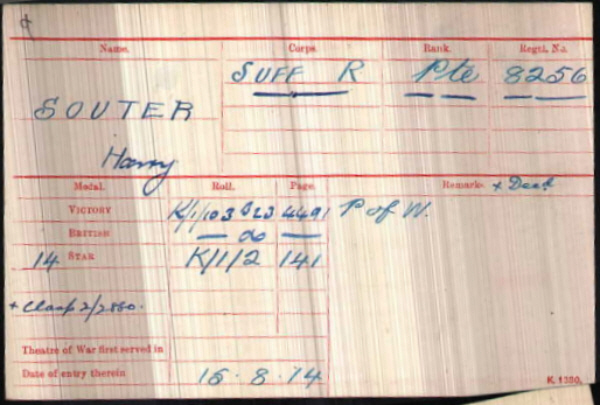 Name. Corps. Rank. Regtl. No.
SUFF R Pte 8256
SOUTER
Harry
Medal. Roll. Page. Remarks. + Dead
VICTORY K/1/103 B23 4491 P of W.
BRITISH — do —
14 STAR K/1/2 141
+ Clasp 2/2880.
Theatre of War first served in
Date of entry therein 15.8.14
K. 1380.